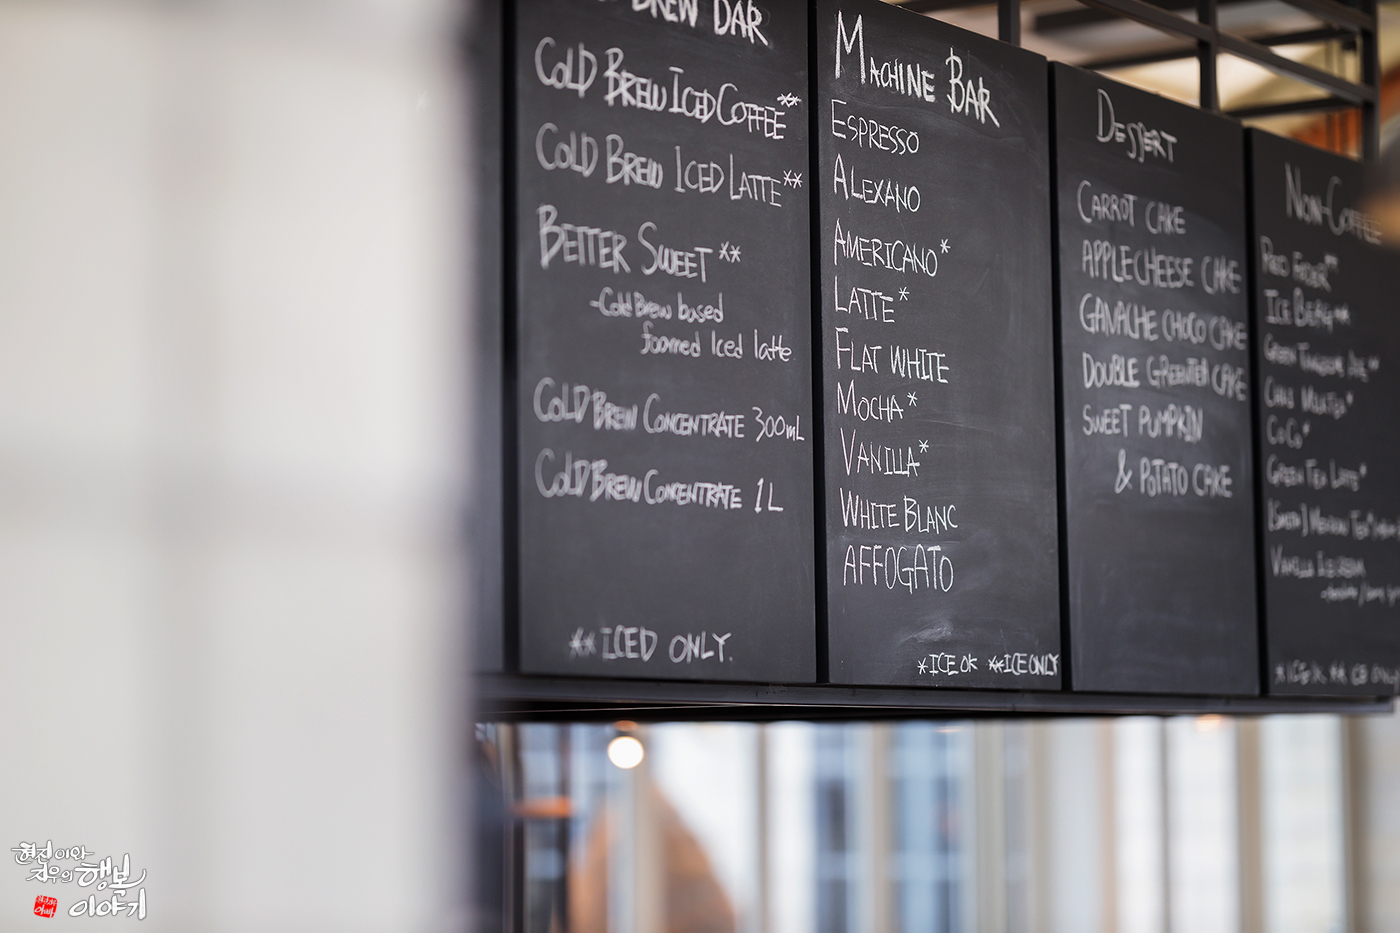 BREW BAR
COLD BREW ICED COFFEE**
COLD BREW ICED LATTE**
BETTER SWEET**
-Cold Brew based
foamed Iced latte
COLD BREW CONCENTRATE 300mL
COLD BREW CONCENTRATE 1L
**ICED ONLY.
MACHINE BAR
ESPRESSO
ALEXANO
AMERICANO*
LATTE*
FLAT WHITE
MOCHA*
VANILLA*
WHITE BLANC
AFFOGATO
*ICE OK **ICE ONLY
DESSERT
CARROT CAKE
APPLECHEESE CAKE
GANACHE CHOCO CAKE
DOUBLE GREENTEA CAKE
SWEET PUMPKIN
& POTATO CAKE
NON-COFFEE
ICE BERG**
COCO*
GREEN TEA LATTE*
VANILLA
현진이와
정우의 행복
이야기